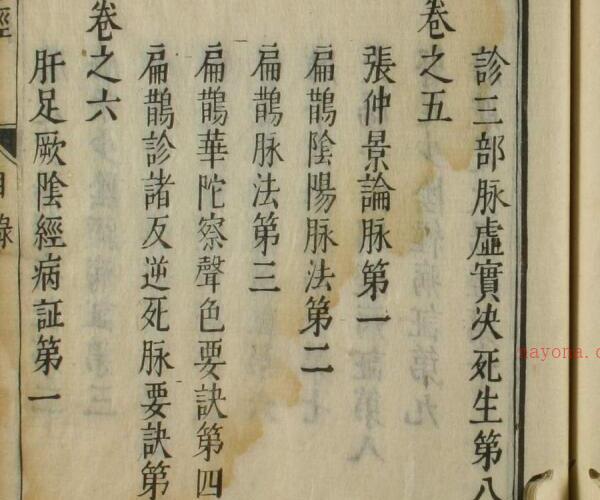 診三部脉虛實决死生第八
卷之五
張仲景論脉第一
扁鵲陰陽脉法第二
扁鵲脉法第三
扁鵲華陀察聲色要訣第四
扁鵲診諸反逆死脉要訣第
卷之六
肝足厥陰經病証第一
經
目錄